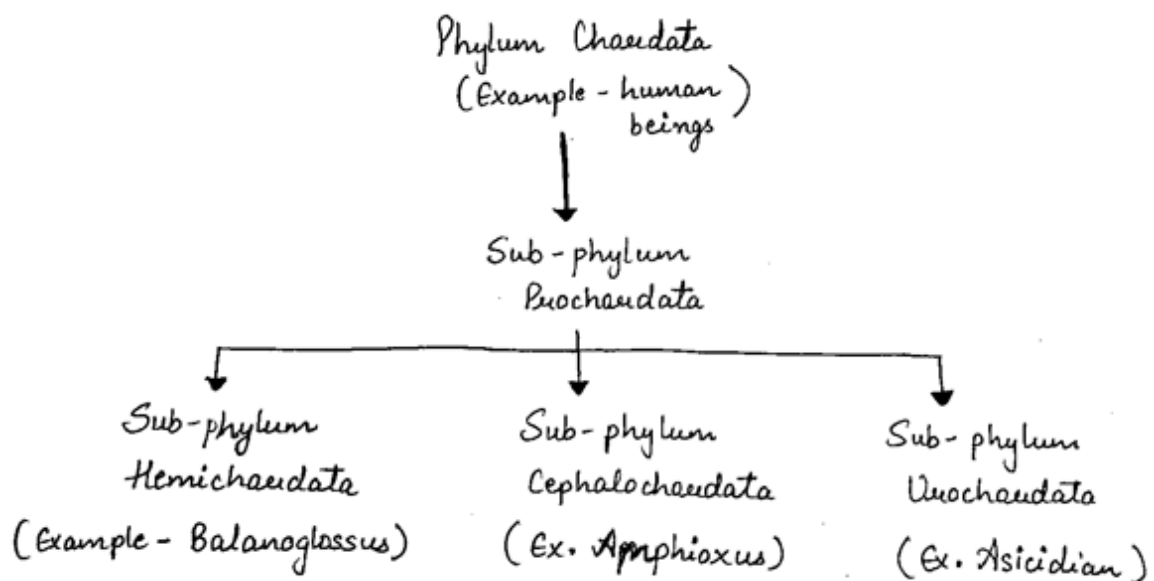 Phylum Chordata
(Example - human
beings)
Sub-phylum
Prochordata
Sub-phylum
Hemichordata
(Example - Balanoglossus)
Sub-phylum
Cephalochordata
(Ex. Amphioxus)
Sub-phylum
Urochordata
(Ex. Asicidian)